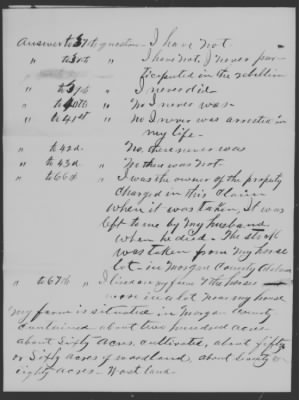 Answer to 37th question - I have not.
" to 38th " I have not, I never par-
ticipated in the rebellion
" to 39th " I never did -
" to 40th " No I never was -
" to 41st " no I never was arrested in
my life -
" to 42d - No, there never was
" to 43d - No there was not -
" to 66th " I was the owner of the property
charged in this claim
when it was taken, It was
left to me by my husband
when he died - The stuff
was taken from my horse
lot - in Morgan County Alabama
" to 67th " I lived on my farm & the horses
were in a lot near my house
My farm is situated in Morgan County
contained about two hundred acres
about Sixty acres cultivated, about fifty
or Sixty acres of woodland, about seventy or
eighty acres - Wasteland.